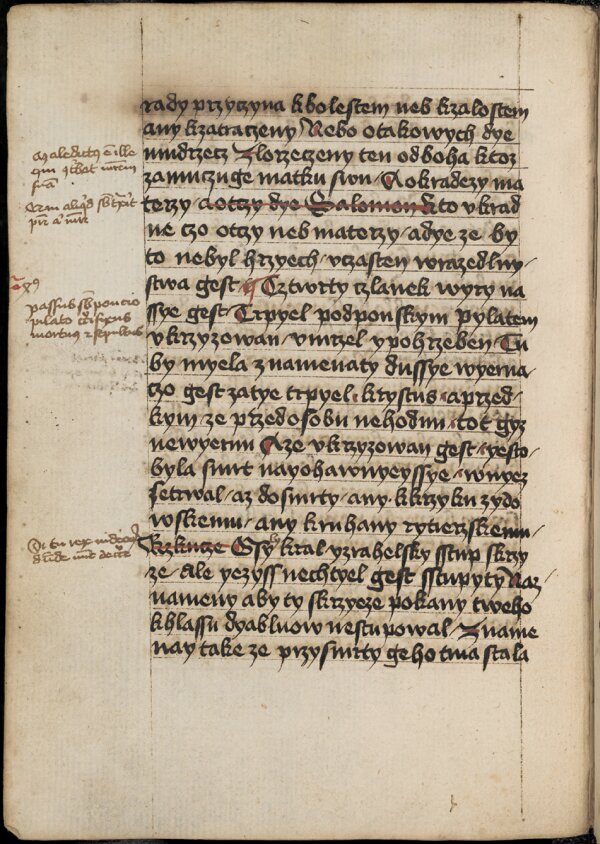 rady przyczyna k bolestem neb k zalostem
any k zatraczeny Nebo o takowych dye
mudrzecz Zlorzeczeny ten od boha ktoz
zamuczuge matku swu A o kradezy ma
terzy a otczy dye Salomon Kto vkrad
ne czo otczy neb materzy a dye ze by
to nebyl hrzyech vczasten wrazedlny
stwa gest Cztwrty czlanek wyry na
ssye gest Trpyel pod ponskym pylatem
vkrzyzowan vmrzel y pohrzeben Tu
by myela znamenaty dussye wyerna
czo gest za tye trpyel krystus a przed
kym ze przed osobu nehodnu tot gyz
newyernu A ze vkrzyzowan gest yesto
byla smrt nayohawnyeyssye w nyez
setrwal az do smrty any k krzyku zydo
wskemu any k ruhany rytierzskemu
Krzkucze Gsy kral yzrahelsky sstup s krzy
ze Ale yezyss nechtyel gest sstupyty Naz
nameny aby ty s krzyeze pokany tweho
k hlassu dyabluow nestupowal Zname
nay take ze przy smrty geho tma stala
Maledictus e ille
qui
passus sb poncio
pilato crucifixus
mortuus et sepultus
Si tu rex